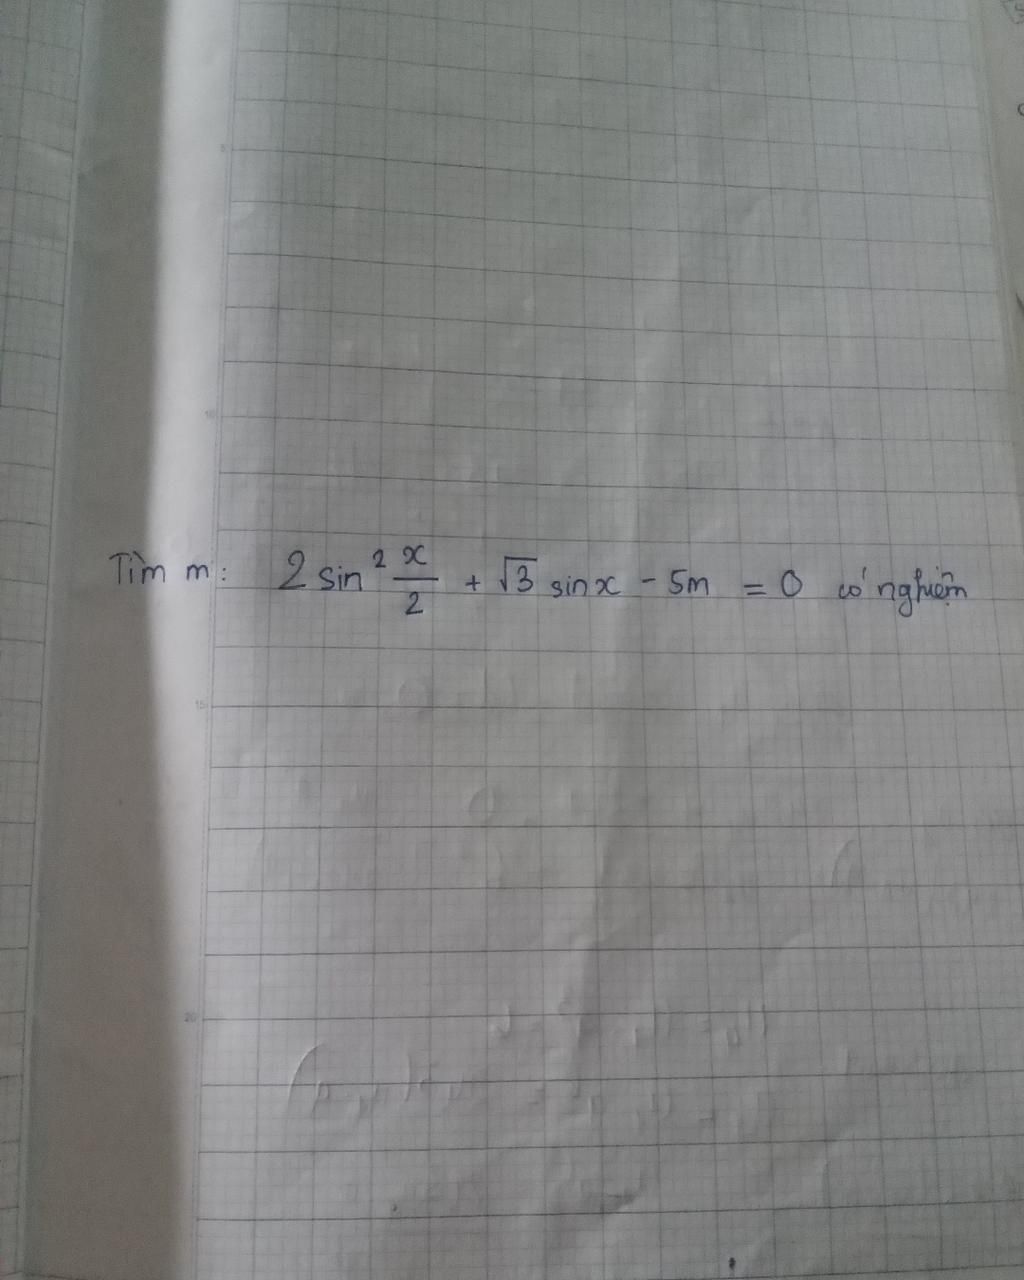 Tìm m: 2 sin² x/2 + √3 sin x - 5m = 0 có nghiệm